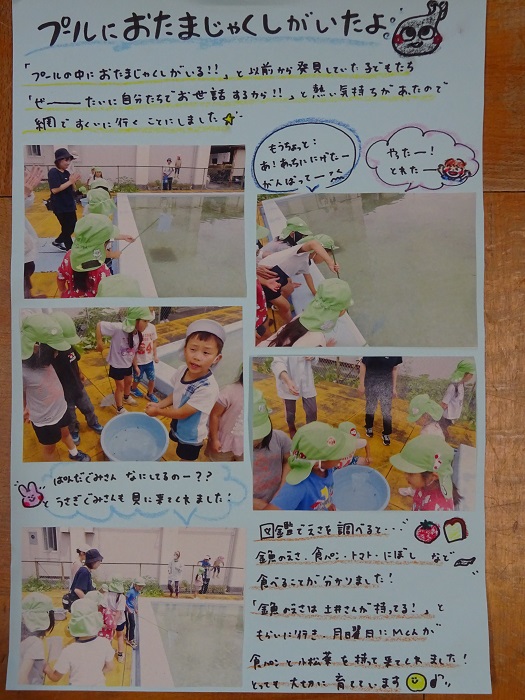 プールにおたまじゃくしがいたよ。
「プールの中におたまじゃくしがいる!!」と以前から発見していた子どもたち
「ぜーーーたいに自分たちでお世話するから!!」と熱い気持ちがあったので
網ですくいに行くことにしました
もうちょっと:
あ!あっちににげたー
がんばってー
やったー!
とれたー
ぱんだぐみさん なにしてるのー??
とうさぎぐみさんも見に来てくれました!
図鑑でえさを調べると…
金魚のえさ・食パン・トマト・にぼし などを
食べることが分かりました!
「金魚のえさは土井さんが持ってる!」と
もらいに行き、月曜日にMくんが
食パンと小松菜を持って来てくれました!
とっても大切に育てています